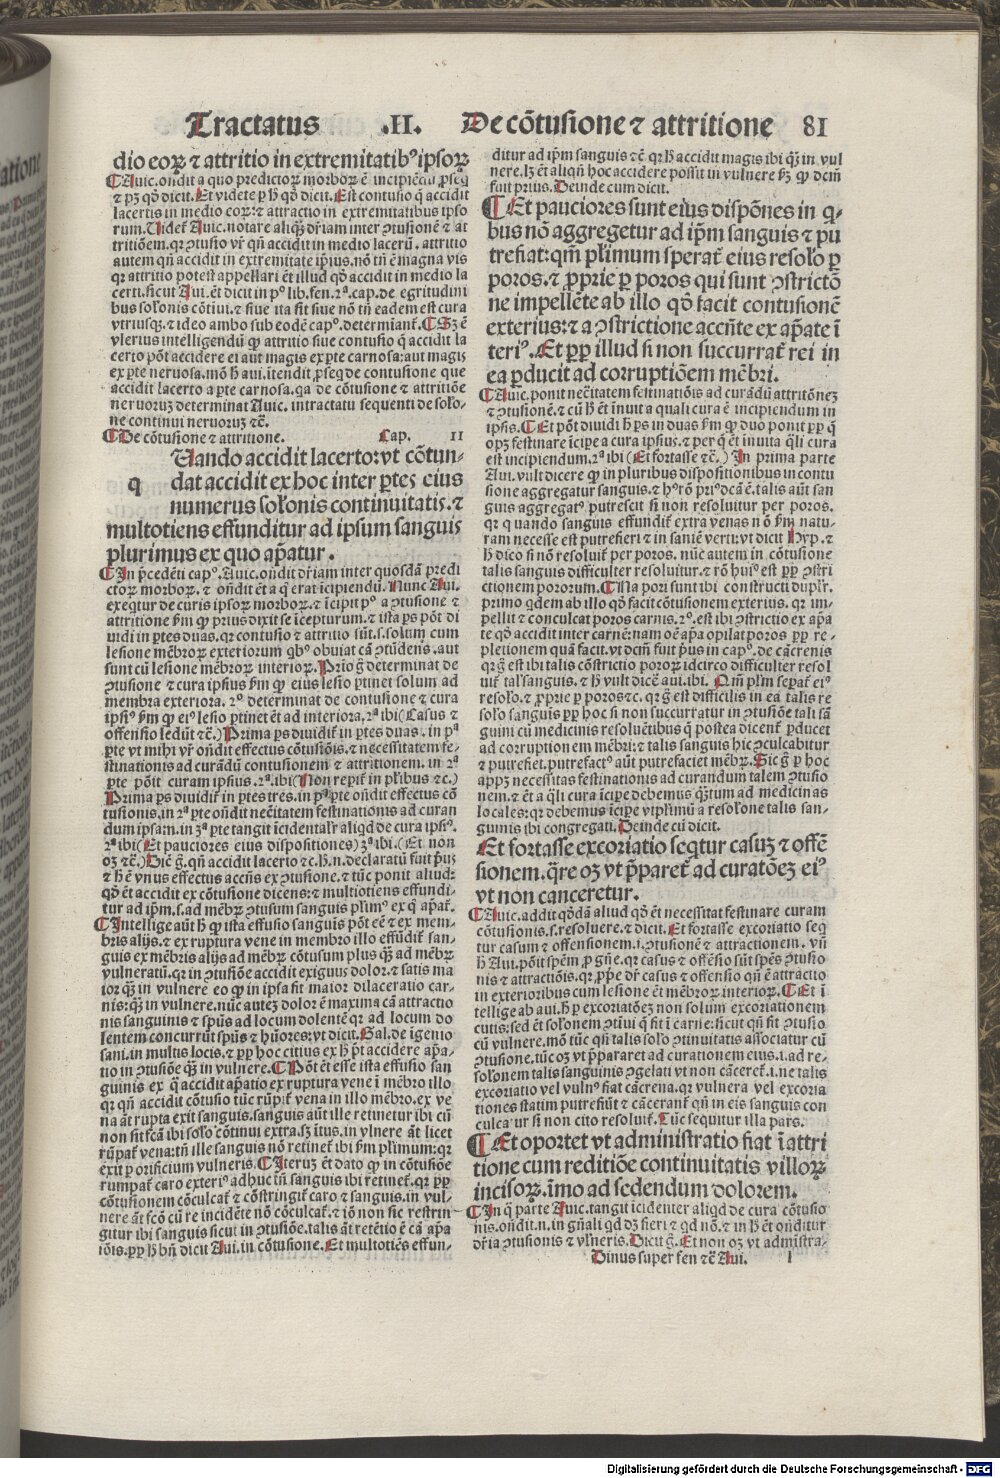 Tractatus .II. De cõtusione ⁊ attritione 81
dio eoꝝ ⁊ attritio in extremitatibꝰ ipsoꝝ
¶Auic. oñdit a quo predictoꝝ morboꝝ ē incipiēdū ꝓseq
⁊ pꝫ qõ dicit. Et videte p̱ ħ qõ dicit. Est contusio q̃ accidit
lacertis in medio eoꝝ: ⁊ attractio in extremitatibus ipso
rum. Uidet̃ Auic. notare aliqꝫ dr̃iam inter ꝯtusionē ⁊ at
tritiõem. qꝛ ꝯtusio vr̃ qñ accidit in medio lacerti. attritio
autem qñ accidit in extremitate ipsius. nõ tñ ē magna vis
qꝛ attritio potest appellari ēt illud qõ accidit in medio la
certi. sicut Aui. ēt dicit in pº lib. fen. 2ª. cap. de egritudini
bus solonis cõtiui. ⁊ siue ita sit siue nõ tñ eadem est cura
vtriusqꝫ. ⁊ ideo ambo sub eodē capº. determiant̃. ¶Sꝫ ē
vlerius intelligendū ꝙ attritio siue contusio q̃ accidit la
certo põt accidere ei aut magis ex pte carnosa: aut magis
ex pte neruosa. mõ ħ aui. itendit ꝓseq de contusione que
accidit lacerto a pte carnosa. qa de cõtusione ⁊ attritiõe
neruoruꝫ determinat Auic. intractatu sequenti de solo-
ne continui neruoruꝫ ⁊c̃.
¶De cõtusione ⁊ attritione. Cap. 11
Uando accidit lacerto: vt cõtun-
q dat accidit ex hoc inter p̱tes eius
numerus solonis continuitatis. ⁊
multotiens effunditur ad ipsum sanguis
plurimus ex quo ap̃atur.
¶In p̃cedēti capº. Auic. oñdit dr̃iam inter quosdā predi
ctoꝝ morboꝝ. ⁊ oñdit ēt a q̃ erat icipiendū. Nunc Aui.
exeqtur de curis ipsoꝝ morboꝝ. ⁊ icipit pº a ꝯtusione ⁊
attritione ꝑm ꝙ prius dixit se icepturum. ⁊ ista ps põt di
uidi in ptes duas. qꝛ contusio ⁊ attritio sūt. s. solum cum
lesione mēbroꝝ exterioruꝫ qbꝰ obuiat cā ꝯtūdens. aut
sunt cū lesione mēbroꝝ interioꝝ. Prio g̃ determinat de
ꝯtusione ⁊ cura ipsius ꝑm ꝙ eius lesio ptinet solum ad
membra exteriora. 2º determinat de contusione ⁊ cura
ipsiꝰ ꝑm ꝙ eiꝰ lesio ptinet ēt ad interiora. 2ª ibi (Casus ⁊
offensio ledūt ⁊c̃.) Prima ps diuidit̃ in ptes duas. in pª
pte vt mihi vr̃ oñdit effectus cõtusiõis. ⁊ necessitatem fe-
stinationis ad curādū contusionem ⁊ attritionem. in 2ª
pte põit curam ipsius. 2ª. ibi (Non repit̃ in pl̃ibus ⁊c.)
Prima ps diuidit̃ in ptes tres. in pª pte oñdit effectus cõ
tusionis. in 2ª pte oñdit necitatem festinationis ad curan
dum ipsam. in 3ª pte tangit icidentalr̃ aliqd de cura ipsiꝰ.
2ª ibi (Et pauciores eius dispositiones) 3ª ibi. (Et non
oꝫ ⁊c̃.) Dic̃ g̃. qñ accidit lacerto ⁊c. ħ. n. declaratū fuit p̃us
⁊ ħ ē vnus effectus accñs ex ꝯtusione. ⁊ tūc ponit aliud:
qõ ēt accidit ex cõtusione dicens: ⁊ multiotiens effundi-
tur ad ip̃m. s. ad mēbꝝ ꝯtusum sanguis pl̃imꝰ ex q̃ ap̃at̃.
¶Intellige aut̃ ħ ꝙ ista effusio sanguis põt eē ⁊ ex mem-
bris alijs. ⁊ ex ruptura vene in membro illo effūdit̃ san-
guis ex mēbris alijs ad mēbꝝ cõtusum plus qꝫ ad mēbꝝ
vulneratū. qꝛ in ꝯtusiõe accidit exiguus dolor. ⁊ satis ma
ior qꝫ in vulnere eo ꝙ in ipsa fit maior dilaceratio car-
nis: qꝫ in vulnere. nūc auteꝫ dolor ē maxima cā attractio
nis sanguinis ⁊ spūs ad locum dolentē: qꝛ ad locum do
lentem concurrūt spūs ⁊ hūores: vt dicit. Gal. de igenio
sani. in multis locis. ⁊ pp̱ hoc citius ex ħ p̃t accidere ap̃a-
tio in ꝯtusiõe qꝫ in vulnere. ¶Põt ēt esse ista effusio san
guinis ex q̃ accidit ap̃atio ex ruptura vene i mēbro illo
qꝛ qñ accidit cõtusio tūc rūpit̃ vena in illo mēbro. ex ve
na āt rupta exit sanguis. sanguis aūt ille retinetur ibi cū
non sit fc̃ā ibi solo cõtinui extra. sꝫ itus. in vlnere āt licet
rūpat̃ vena: tñ ille sanguis nõ retinet̃ ibi ꝑm plimum: qꝛ
exit p orificium vulneris. ¶Iteruꝫ ēt dato ꝙ in cõtusiõe
rumpat̃ caro exteriꝰ adhuc tñ sanguis ibi retinet̃. qꝛ pp̱
cõtusionem cõculcat̃ ⁊ cõstringit̃ caro ⁊ sanguis. in vul-
nere āt fc̃o cū re incidēte nõ cõculcat̃. ⁊ iõ non sic restrin-
gitur ibi sanguis sicut in ꝯtusiõe. talis āt retētio ē cā ap̃a
iõis. pp̱ ħ bñ dicit Aui. in cõtusione. Et multotiēs effun-
ditur ad ip̃m sanguis ⁊c̃ qꝛ ħ accidit magis ibi qꝫ in vul
nere. lꝫ ēt aliqñ hoc accidere possit in vulnere ꝑꝫ ꝙ dc̃m
fuit prius. Deinde cum dicit.
¶Et pauciores sunt eius dispõnes in q̃-
bus nõ aggregetur ad ip̃m sanguis ⁊ pu
trefiat: qm̃ plimum sperat̃ eius resolo p̱
poros. ⁊ ꝓprie p̱ poros qui sunt ꝯstrictõ
ne impellēte ab illo qõ facit contusionē
exterius: ⁊ a ꝯstrictione accñte ex ap̃ate i
teriꝰ. Et pp̱ illud si non succurrat̃ rei in
ea p̱ducit ad corruptiõem mēbri.
¶Auic. ponit necitatem festinatiõis ad curādū attritõneꝫ
⁊ ꝯtusionē. ⁊ cū ħ ēt inuit a quali cura ē incipiendum in
ipsis. ¶Et põt diuidi ħ ps in duas ꝑm ꝙ duo ponit pp̱ q̃
opꝫ festinare icipe a cura ipsius. ⁊ per q̃ ēt inuita q̃li cura
est incipiendum. 2ª ibi (Et fortasse ⁊c̃.) In prima parte
Aui. vult dicere ꝙ in pluribus dispositionibus in contu
sione aggregatur sanguis. ⁊ hꝰ rõ priꝰ dc̃a ē. talis aūt san
guis aggregatꝰ putrescit si non resoluitur per poros.
qꝛ quando sanguis effundit̃ extra venas nõ ꝑm natu-
ram necesse est putrefieri ⁊ in saniē verti: vt dicit Hyp. ⁊
ħ dico si nõ resoluit̃ per poros. nūc autem in cõtusione
talis sanguis difficulter resoluitur. ⁊ rõ huiꝰ est pp̱ ꝯstri
ctionem pororum. ¶Ista pori sunt ibi constructi duplr̃.
primo qdem ab illo qõ facit cõtusionem exterius. qꝛ im-
pellit ⁊ conculcat poros carnis. 2º. est ibi ꝯstrictio ex ap̃a
te qõ accidit inter carnē: nam oē ap̃a opilat poros pp̱ re-
pletionem quā facit. vt dc̃m̃ fuit p̃us in capº. de cācrenis
qꝛ g̃ est ibi talis cõstrictio poroꝝ idcirco difficulter resol
uit̃ talꝰ sanguis. ⁊ ħ vult dicē aui. ibi. Qm̃ plm separat̃ eiꝰ
resolo. ⁊ ꝓprie p̱ poros ⁊c. qꝛ g̃ est difficilis in ea talis re
solo sanguis pp̱ hoc si non succurratur in ꝯtusiõe tali sā
guini cū medicinis resoluētibus q̃ postea dicent̃ p̱ducet
ad corruptionem mēbri: ⁊ talis sanguis hic ꝯculcabitur
⁊ putrefiet. putrefactꝰ aūt putrefaciet mēbꝝ. Sic g̃ p̱ hoc
appꝫ necessitas festinationis ad curandum talem ꝯtusio
nem. ⁊ ēt a q̃li cura icipe debemus qꝫtum ad medicinas
locales: qꝛ debemus icipe vtplimū a resolone talis san-
guinis ibi congregati. Deinde cū dicit.
Et fortasse excoriatio seqtur casuꝫ ⁊ offē
sionem. q̃re oꝫ vt p̃paret̃ ad curatõeꝫ eiꝰ
vt non canceretur.
¶Auic. addit qõdā aliud qõ ēt necessitat festinare curam
cõtusionis. s. resoluere. ⁊ dicit. Et fortasse excoriatio seq
tur casum ⁊ offensionem. i. ꝯtusionē ⁊ attractionem. vñ
ħ Aui. põit spēm ꝓ gñe. qꝛ casus ⁊ offēsio sūt spēs ꝯtusio
nis ⁊ attractiõis. qꝛ ꝓp̃e dr̃ casus ⁊ offensio qñ ē attractio
in exterioribus cum lesione ēt mēbroꝝ interioꝝ. ¶Et i
tellige ab aui. ħ p̱ excoriatõeꝫ non solum excoriationem
cutis: sed ēt solonem ꝯtiui q̃ fit i carne: sicut qñ fit ꝯtusio
cū vulnere. mõ tūc qñ talis solo ꝯtinuitatis associatur cū
ꝯtusione. tūc oꝫ vt p̃paret ad curationem eius. i. ad re-
solonem talis sanguinis ꝯgelati vt non cāceret̃. i. ne talis
excoriatio vel vulnꝰ fiat cācrena. qꝛ vulnera vel excoria
tiones statim putrefiūt ⁊ cācerant̃ qñ in eis sanguis con
culcatur si non cito resoluit̃. Tūc sequitur illa pars.
¶Et oportet vt administratio fiat i attri
tione cum reditiõe continuitatis villoꝝ
incisoꝝ. imo ad sedendum dolorem.
¶In q̃ parte Auic. tangit icidenter aliqd de cura cõtusio
nis. oñdit. n. in gñali qd dꝫ fieri ⁊ qd nõ. ⁊ in ħ ēt oñditur
dr̃ia ꝯtusionis ⁊ vlneris. Dicit g̃. Et non oꝫ vt admistra-
Dinus super fen ⁊c̃ Aui. l
Digitalisierung gefördert durch die Deutsche Forschungsgemeinschaft - DFG